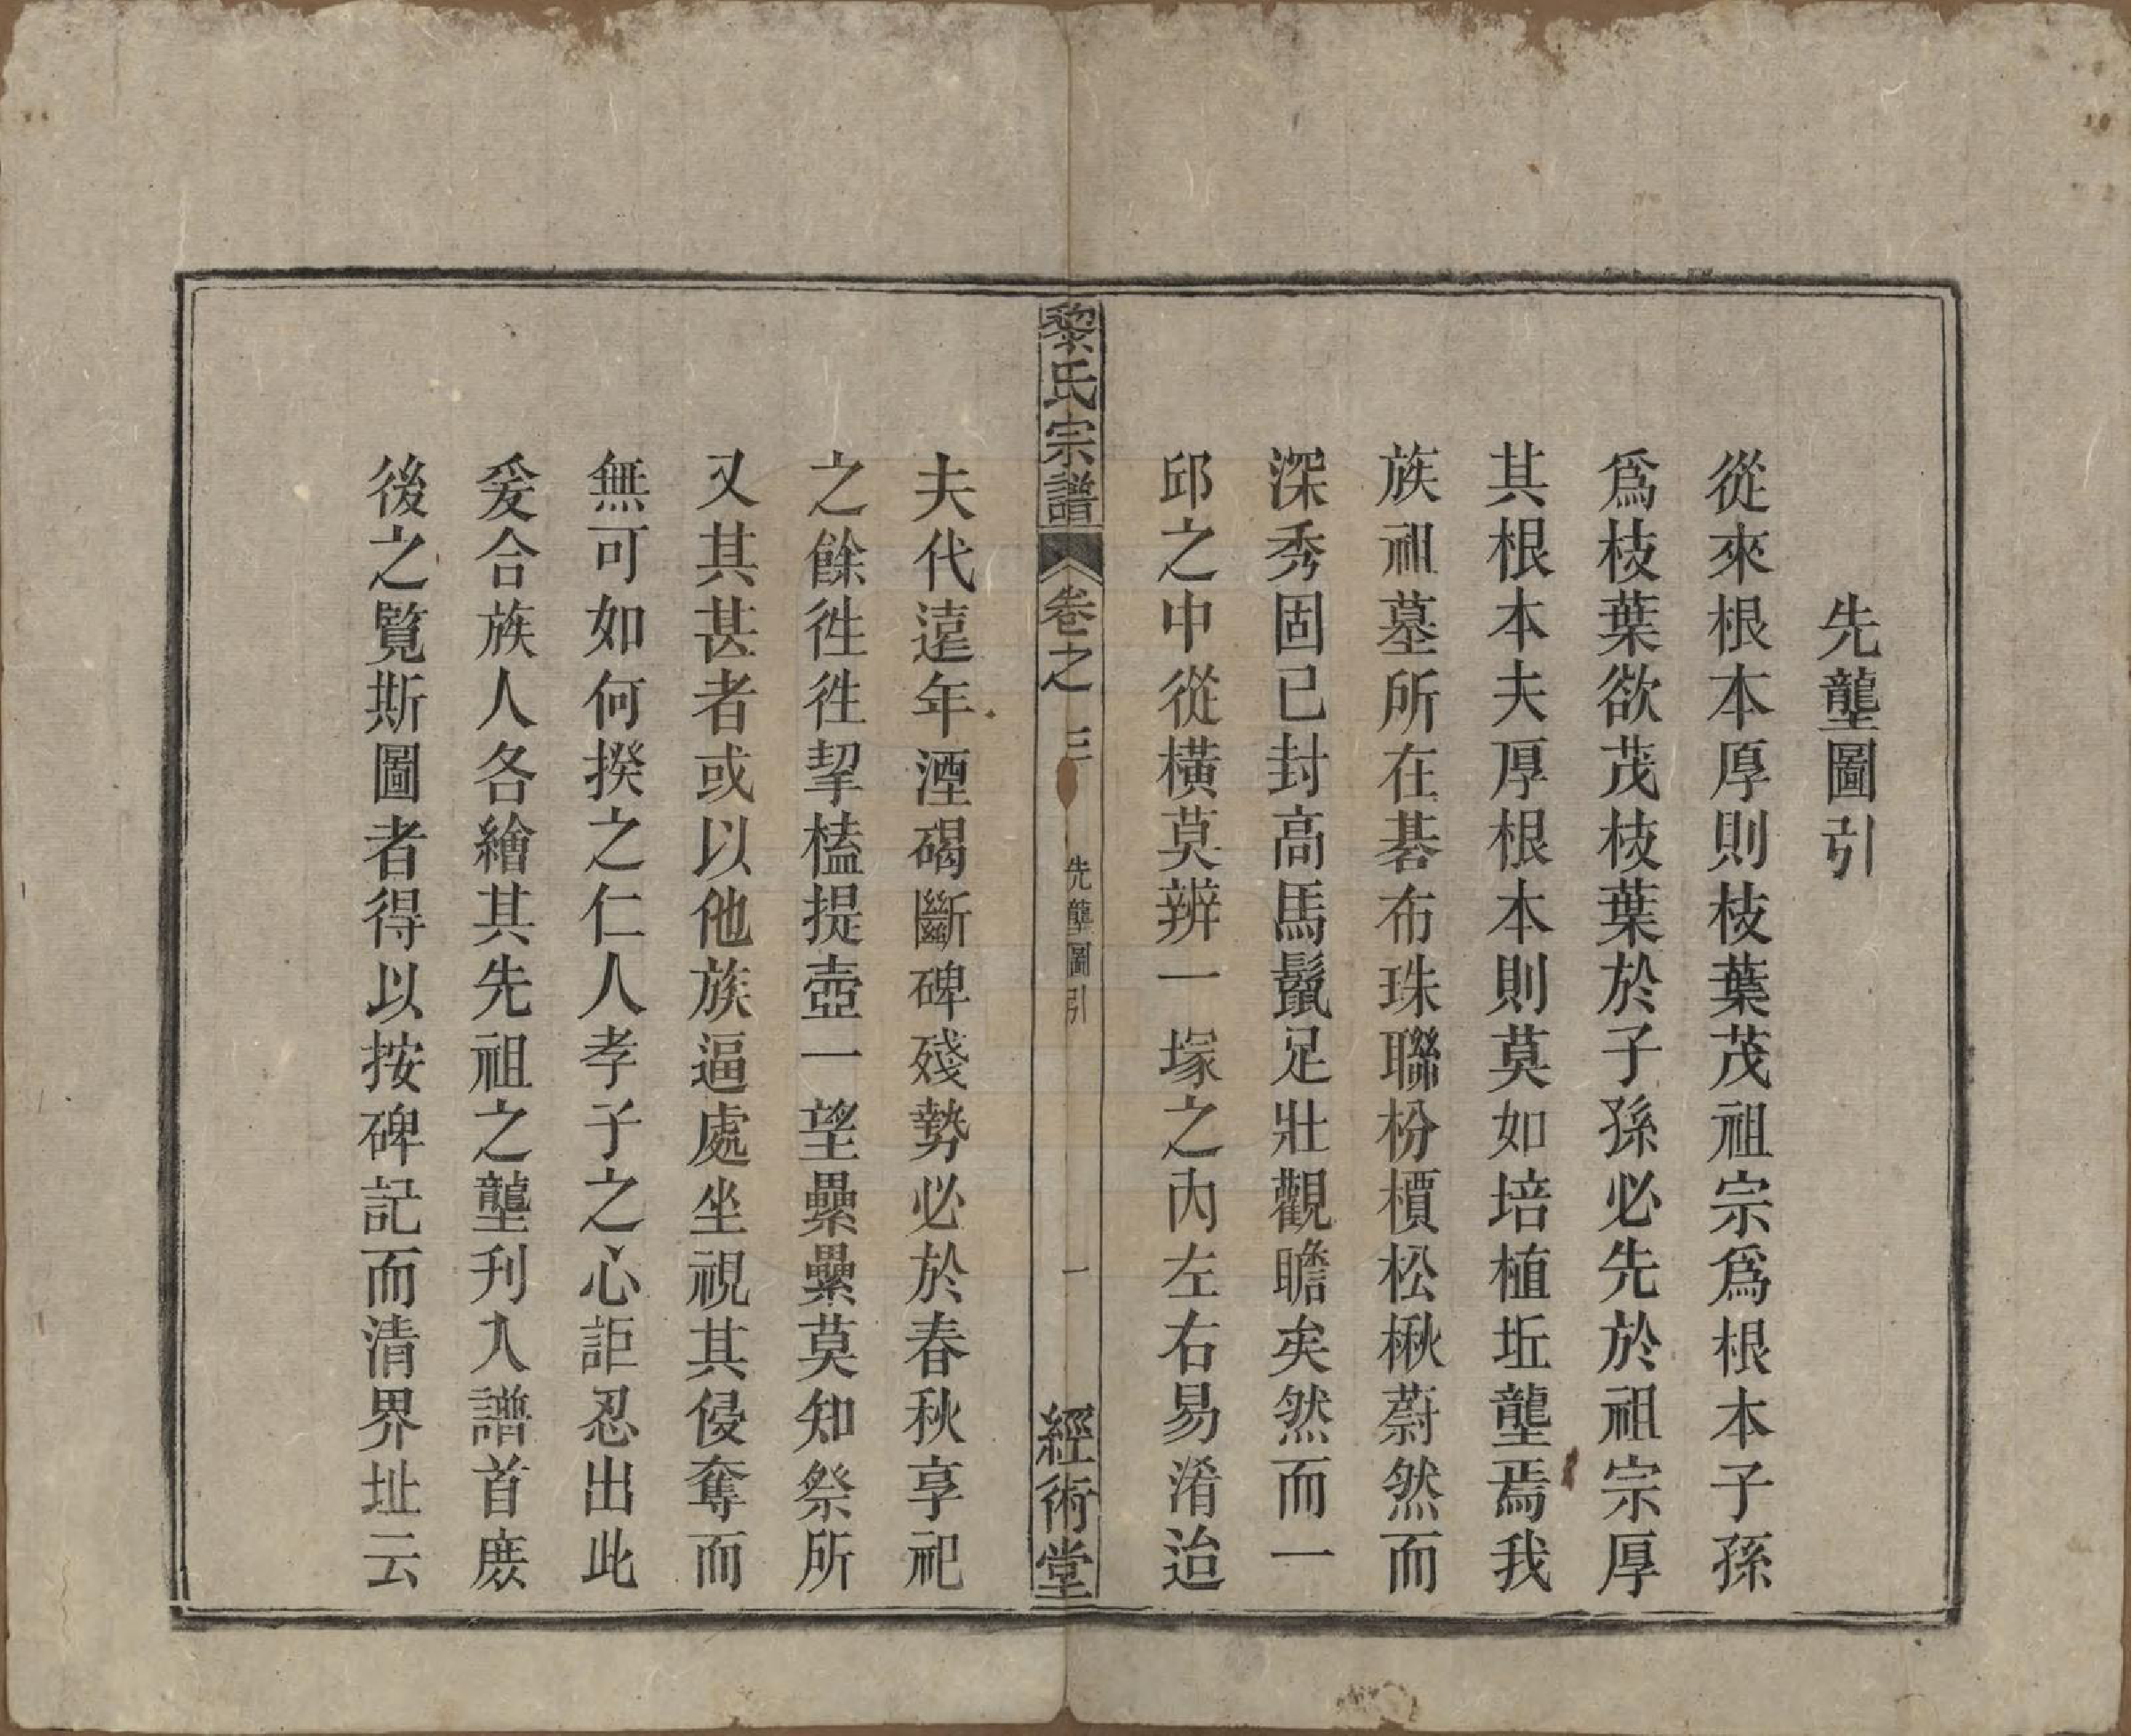 先壟圖引
從來根本厚則枝葉茂祖宗爲根本子孫
爲枝葉欲茂枝葉於子孫必先於祖宗厚
其根本夫厚根本則莫如培植坵壟焉我
族祖墓所在碁布珠聯枌檟松楸蔚然而
深秀固已封高馬鬛足壯觀瞻矣然而一
邱之中從橫莫辨一塚之内左右易淆迨
黎氏宗譜 卷之三 先壟圖引 一 經術堂
夫代遠年湮碣斷碑殘勢必於春秋享祀
之餘徃徃挈榼提壺一望纍纍莫知祭所
又其甚者或以他族逼處坐視其侵奪而
無可如何揆之仁人孝子之心詎忍出此
爰合族人各繪其先祖之壟刋入譜首庻
後之覧斯圖者得以按碑記而清界址云